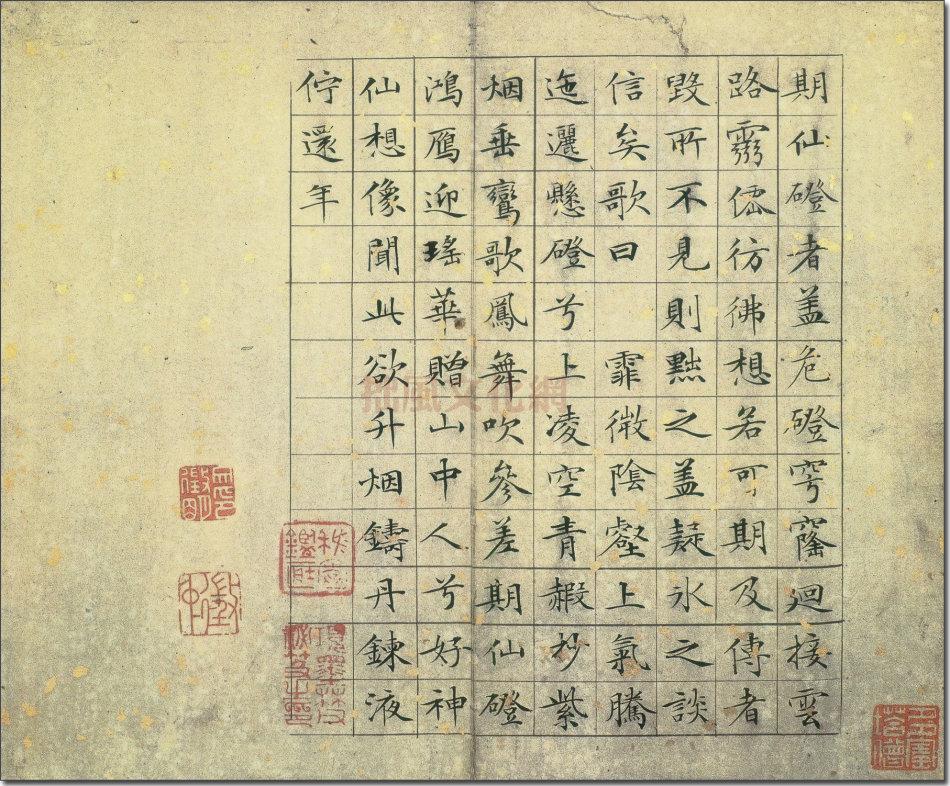 期仙磴者盖危磴穹窿廻接雲
路靈僊彷彿想若可期及傳者
毀所不見則黜之盖疑氷之談
信矣歌曰 霏微陰壑上氣騰
迤邐懸磴兮上凌空青赮杪紫
烟垂鸞歌鳳舞吹參差期仙磴
鴻鴈迎瑤華贈山中人兮好神
仙想像聞此欲升烟鑄丹鍊液
佇還年
風文化網